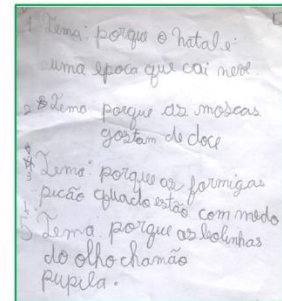 1 Tema: porque o natal é
uma epoca que cai neve
2 Tema porque as moscas
gostam de doce
Tema: porque as formigas
picão quado estão com medo
Tema porque as bolinhas
do olho chamão
pupila.